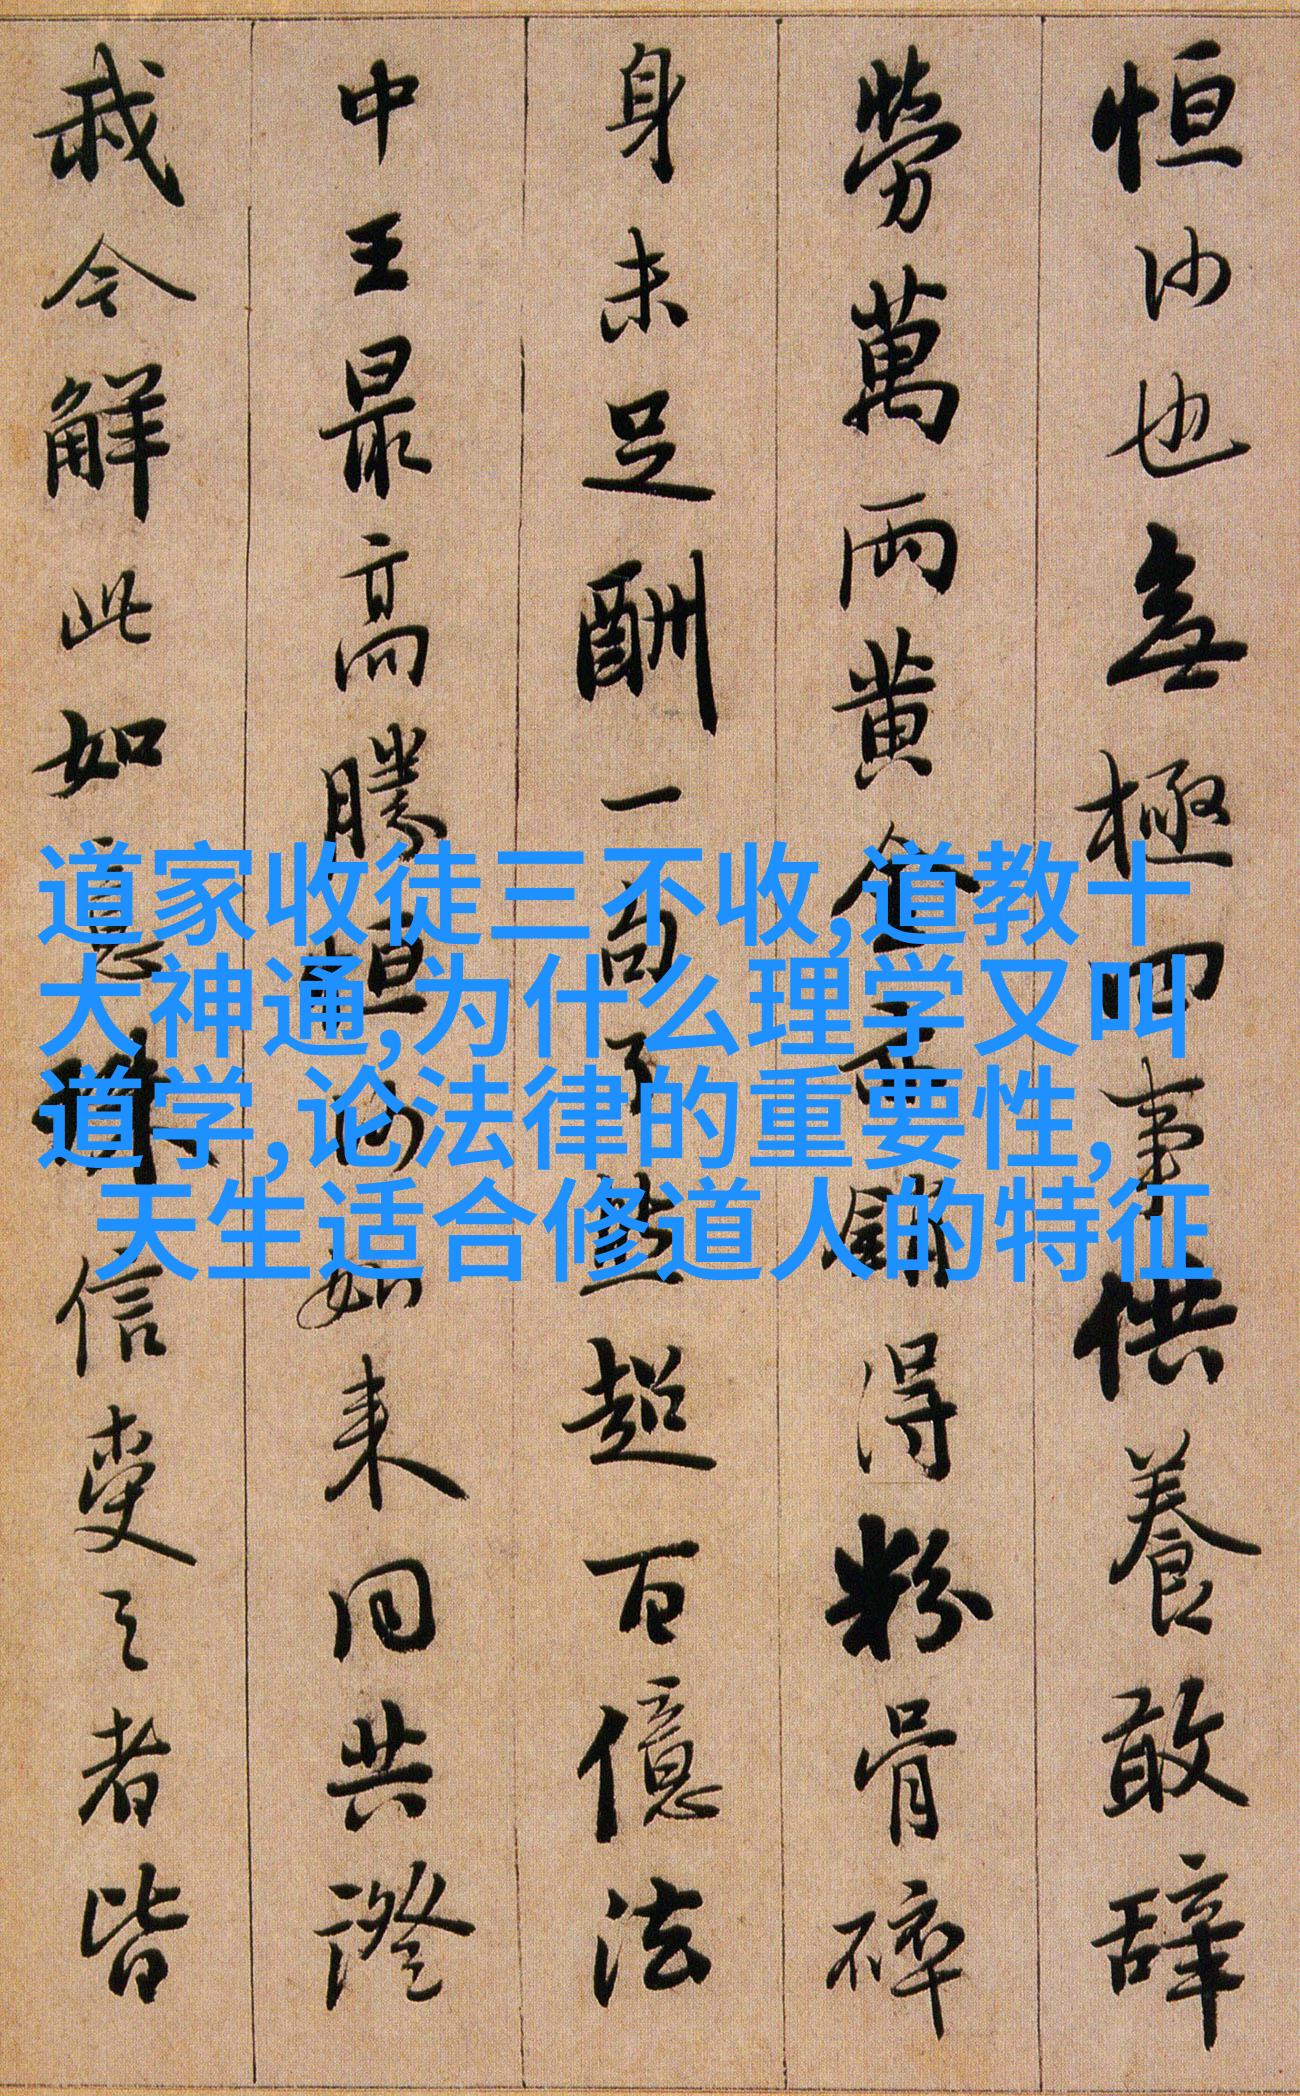 恒沙也無極四事供養敢辭
勞萬兩黃金亦銷得粉骨碎
身未足酬一句了然超百億法
中王最高勝恒沙如来同共證
我今解此如意珠信受之者皆
道家收徒三不收,道教十
大神通,为什么理学又叫
道学,论法律的重要性,
天生适合修道人的特征